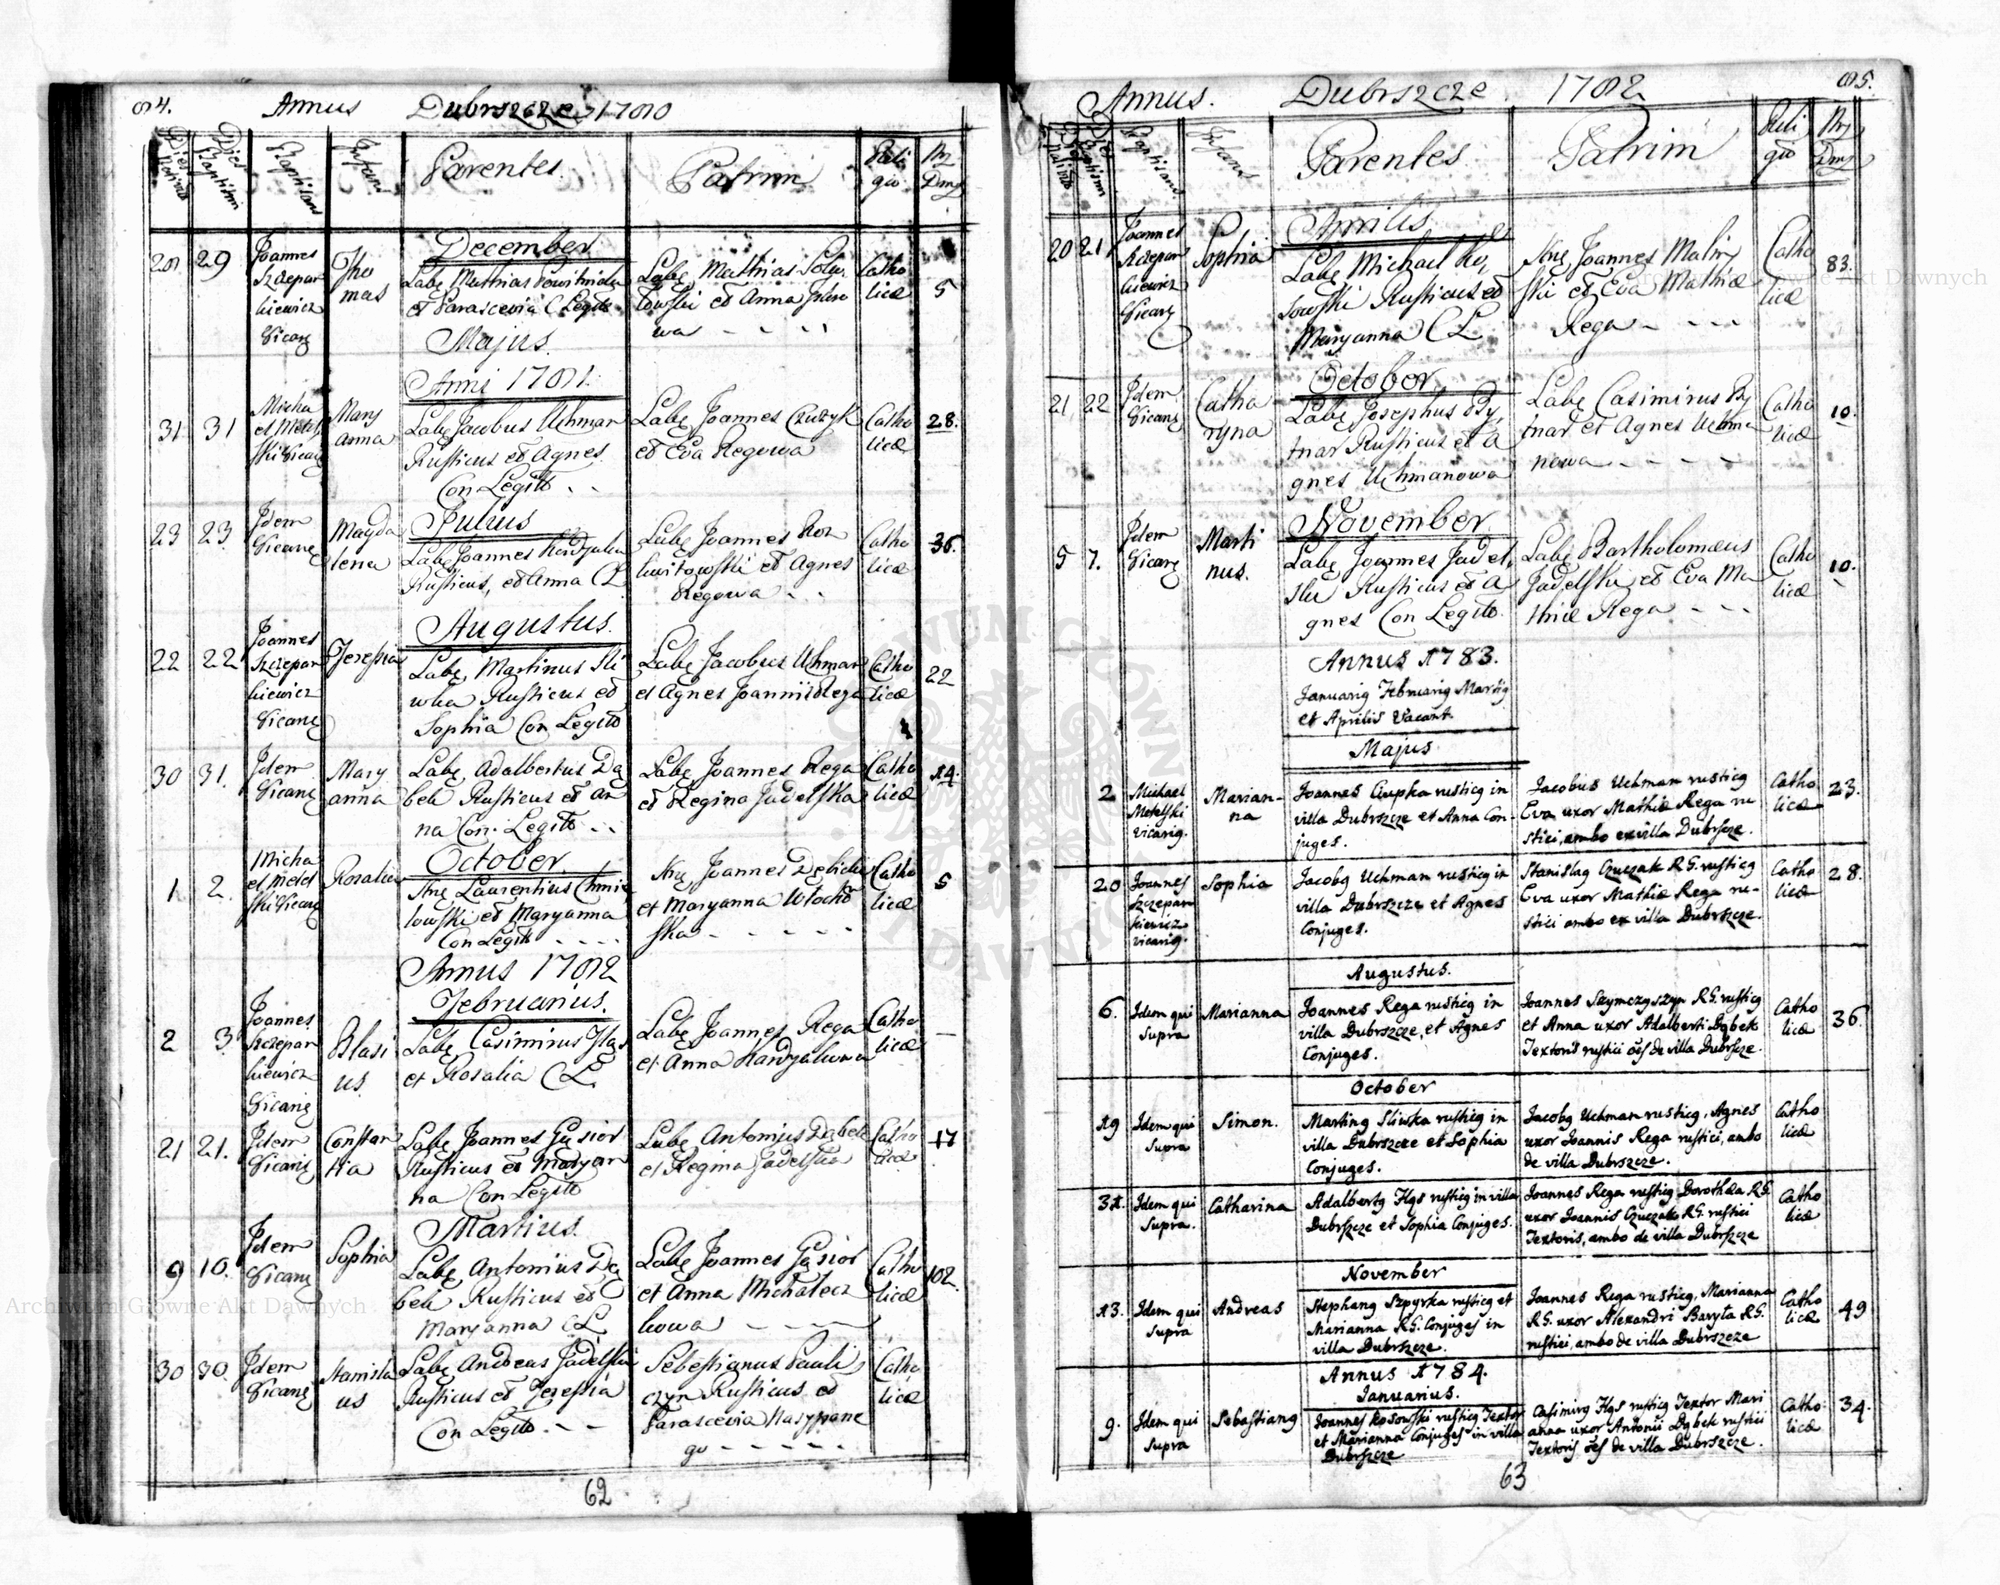 84. Annus Dubrszcze 1780
Dies Nativit
Dies Baptismi
Baptisans
Infans
Parentes.
Patrini
Reli
gio
Nr
Dmg
December
28 29 Joannes
Szczepan
kiewicz
Vicarg
Tho
mas
Labg Matthias
et Parascevia C Legitt
Labg Mathias
et Anna
wa
Catho
licæ
5
Majus
Anni 1781.
31 31 Micha
el Metel
ski Vicarg
Mary
anna
Labg Jacobus Uchman
Rusticus et Agnes
Con Legitt
Labg Joannes Czuzyk
et Eva Regowa
Catho
licæ
28.
Julius
23 23. Idem
Vicarg
Magda
lena
Labg Joannes
Rusticus, et Anna CL
Labg Joannes Koz
et Agnes
Regowa
Catho
licæ
36.
Augustus.
22 22 Joannes
Szczepan
kiewicz
Vicarg
Teressia
Labg Martinus Sli
wka Rusticus et
Sophia Con Legitt
Labg Jacobus Uhman
et Agnes Joannis Rega
Catho
licæ
22
30 31. Idem
Vicarg
Mary
anna
Labg Adalbertus Dą
bek Rusticus et An
na Con. Legitt
Labg Joannes Rega
et Regina Jadelska
Catho
licæ
14.
October
1 2. Micha
el Metel
ski Vicarg
Rosalia
Laurentius Chmie
lowski et Maryanna
Con Legitt
Joannes
et Maryanna Włocho
ska
Catho
licæ
5
Annus 1782
Februarius.
2 3 Joannes
Szczepan
kiewicz
Vicarg
Blasi
us
Labg Casimirus Kgs
et Rosalia CL
Labg Joannes Rega
et Anna
Catho
licæ
21 21. Idem
Vicarg
Constan
tia
Labg Joannes Gąsior
Rusticus et Maryan
na Con Legitt
Labg Antonius Dąbek
et Regina Jadelska
Catho
licæ
17
Martius.
9 10. Idem
Vicarg
Sophia
Labg Antonius Dą
bek Rusticus et
Maryanna CL
Labg Joannes Gąsior
et Anna Michalecz
kowa
Catho
licæ
102.
30 30. Idem
Vicarg
Stanisla
us
Labg Andreas Jadelski
Rusticus et Teressia
Con Legitt
Sebestianus Pauli
czyn Rusticus et
Parascevia Nasypane
go
Catho
licæ
62
Annus. Dubrszcze 1782 85.
Dies Nativit
Dies Baptismi
Baptisans
Infans
Parentes
Patrini
Reli
gio
Nr
Dmg
Aprilis
20 21 Joannes
Szczepan
kiewicz
Vicarg
Sophia
Labg Michael Ko,
sowski Rusticus et
Maryanna CL
Joannes Maliny
ski et Eva Mathiæ
Rega
Catho
licæ
83.
October
21 22 Idem
Vicarg
Catha
ryna
Labg Josephus By,
tnar Rusticus et A
gnes Uchmanowa
Labg Casimirus By
tnar et Agnes Uchma
nowa
Catho
licæ
10.
November
5 7. Idem
Vicarg
Marti
nus.
Labg Joannes Jadel,
ski Rusticus et A
gnes Con Legitt
Labg Bartholomæus
Jadelski et Eva Ma
thiæ Rega
Catho
licæ
10.
Annus 1783.
Januarig Februarig Martig
et Aprilis Vacant.
Majus
2 Michael
Metelski
vicarig.
Marian-
na
Joannes Ciupka rusticg in
villa Dubrszcze et Anna Con-
juges.
Jacobus Uchman rusticg
Eva uxor Mathiæ Rega ru
stici, ambo ex villa Dubrszcze.
Catho
licæ
23.
20 Joannes
Szczepan
kiewicz
vicarig.
Sophia
Jacobg Uchman rusticg in
villa Dubrszcze et Agnes
Conjuges.
Stanislag Czuczak R.G. rusticg
Eva uxor Mathiæ Rega ru-
stici ambo ex villa Dubrszcze.
Catho
licæ
28.
Augustus.
6. Idem qui
Supra
Marianna
Joannes Rega rusticg in
villa Dubrszcze, et Agnes
Conjuges.
Joannes Szymczyszyn R.G. rusticg
et Anna uxor Adalberti Dąbek
Textoris rustici oēs de villa Dubrszcze.
Catho
licæ
36.
October
19 Idem qui
Supra
Simon.
Marting Sliwka rusticg in
villa Dubrszcze et Sophia
Conjuges.
Jacobg Uchman rusticg, Agnes
uxor Joannis Rega rustici, ambo
de villa Dubrszcze.
Catho
licæ
31. Idem qui
Supra.
Catharina
Adalbertg Kgs rusticg in villa
Dubrszcze et Sophia Conjuges.
Joannes Rega rusticg Dorothæa R.G.
uxor Joannis Czuczak R.G. rustici
Textoris, ambo de villa Dubrszcze
Catho
licæ
November
13. Idem qui
Supra
Andreas
Stephang Szpyrka rusticg et
Marianna R.G. Conjuges in
villa Dubrszcze.
Joannes Rega rusticg, Marianna
R.G. uxor Alexandri Baryła R.G.
rustici, ambo de villa Dubrszcze
Catho
licæ
49
Annus 1784.
Januarius.
9. Idem qui
Supra
Sebastiang
Joannes Kosowski rusticg Textor
et Marianna Conjuges in villa
Dubrszcze
Casimirg Kgs rusticg Textor Mari
anna uxor Antonii Dąbek rustici
Textoris oēs de villa Dubrszcze.
Catho
licæ
34.
63
Archiwum Główne Akt Dawnych
Archiwum Główne Akt Dawnych
ARCHIWUM GŁÓWNE AKT DAWNYCH